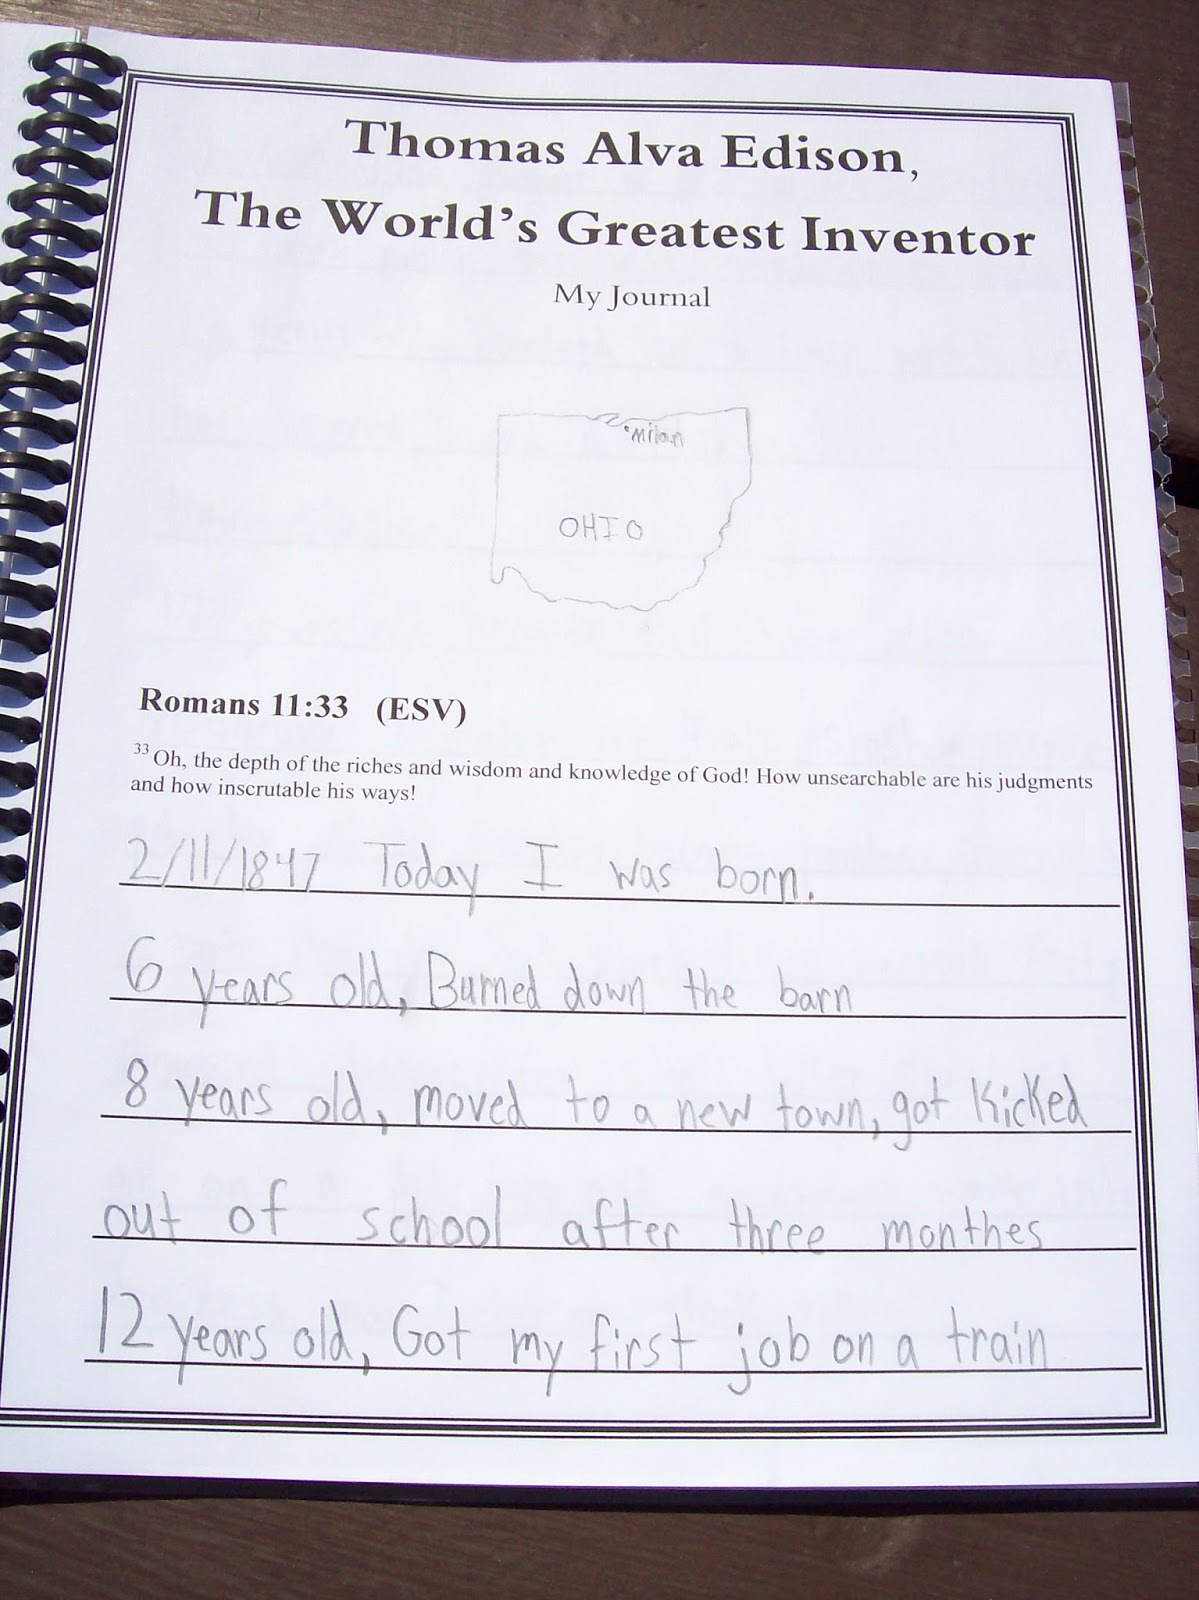 Thomas Alva Edison,
The World's Greatest Inventor
My Journal
Milan
OHIO
Romans 11:33 (ESV)
33 Oh, the depth of the riches and wisdom and knowledge of God! How unsearchable are his judgments
and how inscrutable his ways!
2/11/1847 Today I was born.
6 years old, Burned down the barn
8 years old, moved to a new town, got kicked
out of school after three monthes
12 years old, Got my first job on a train